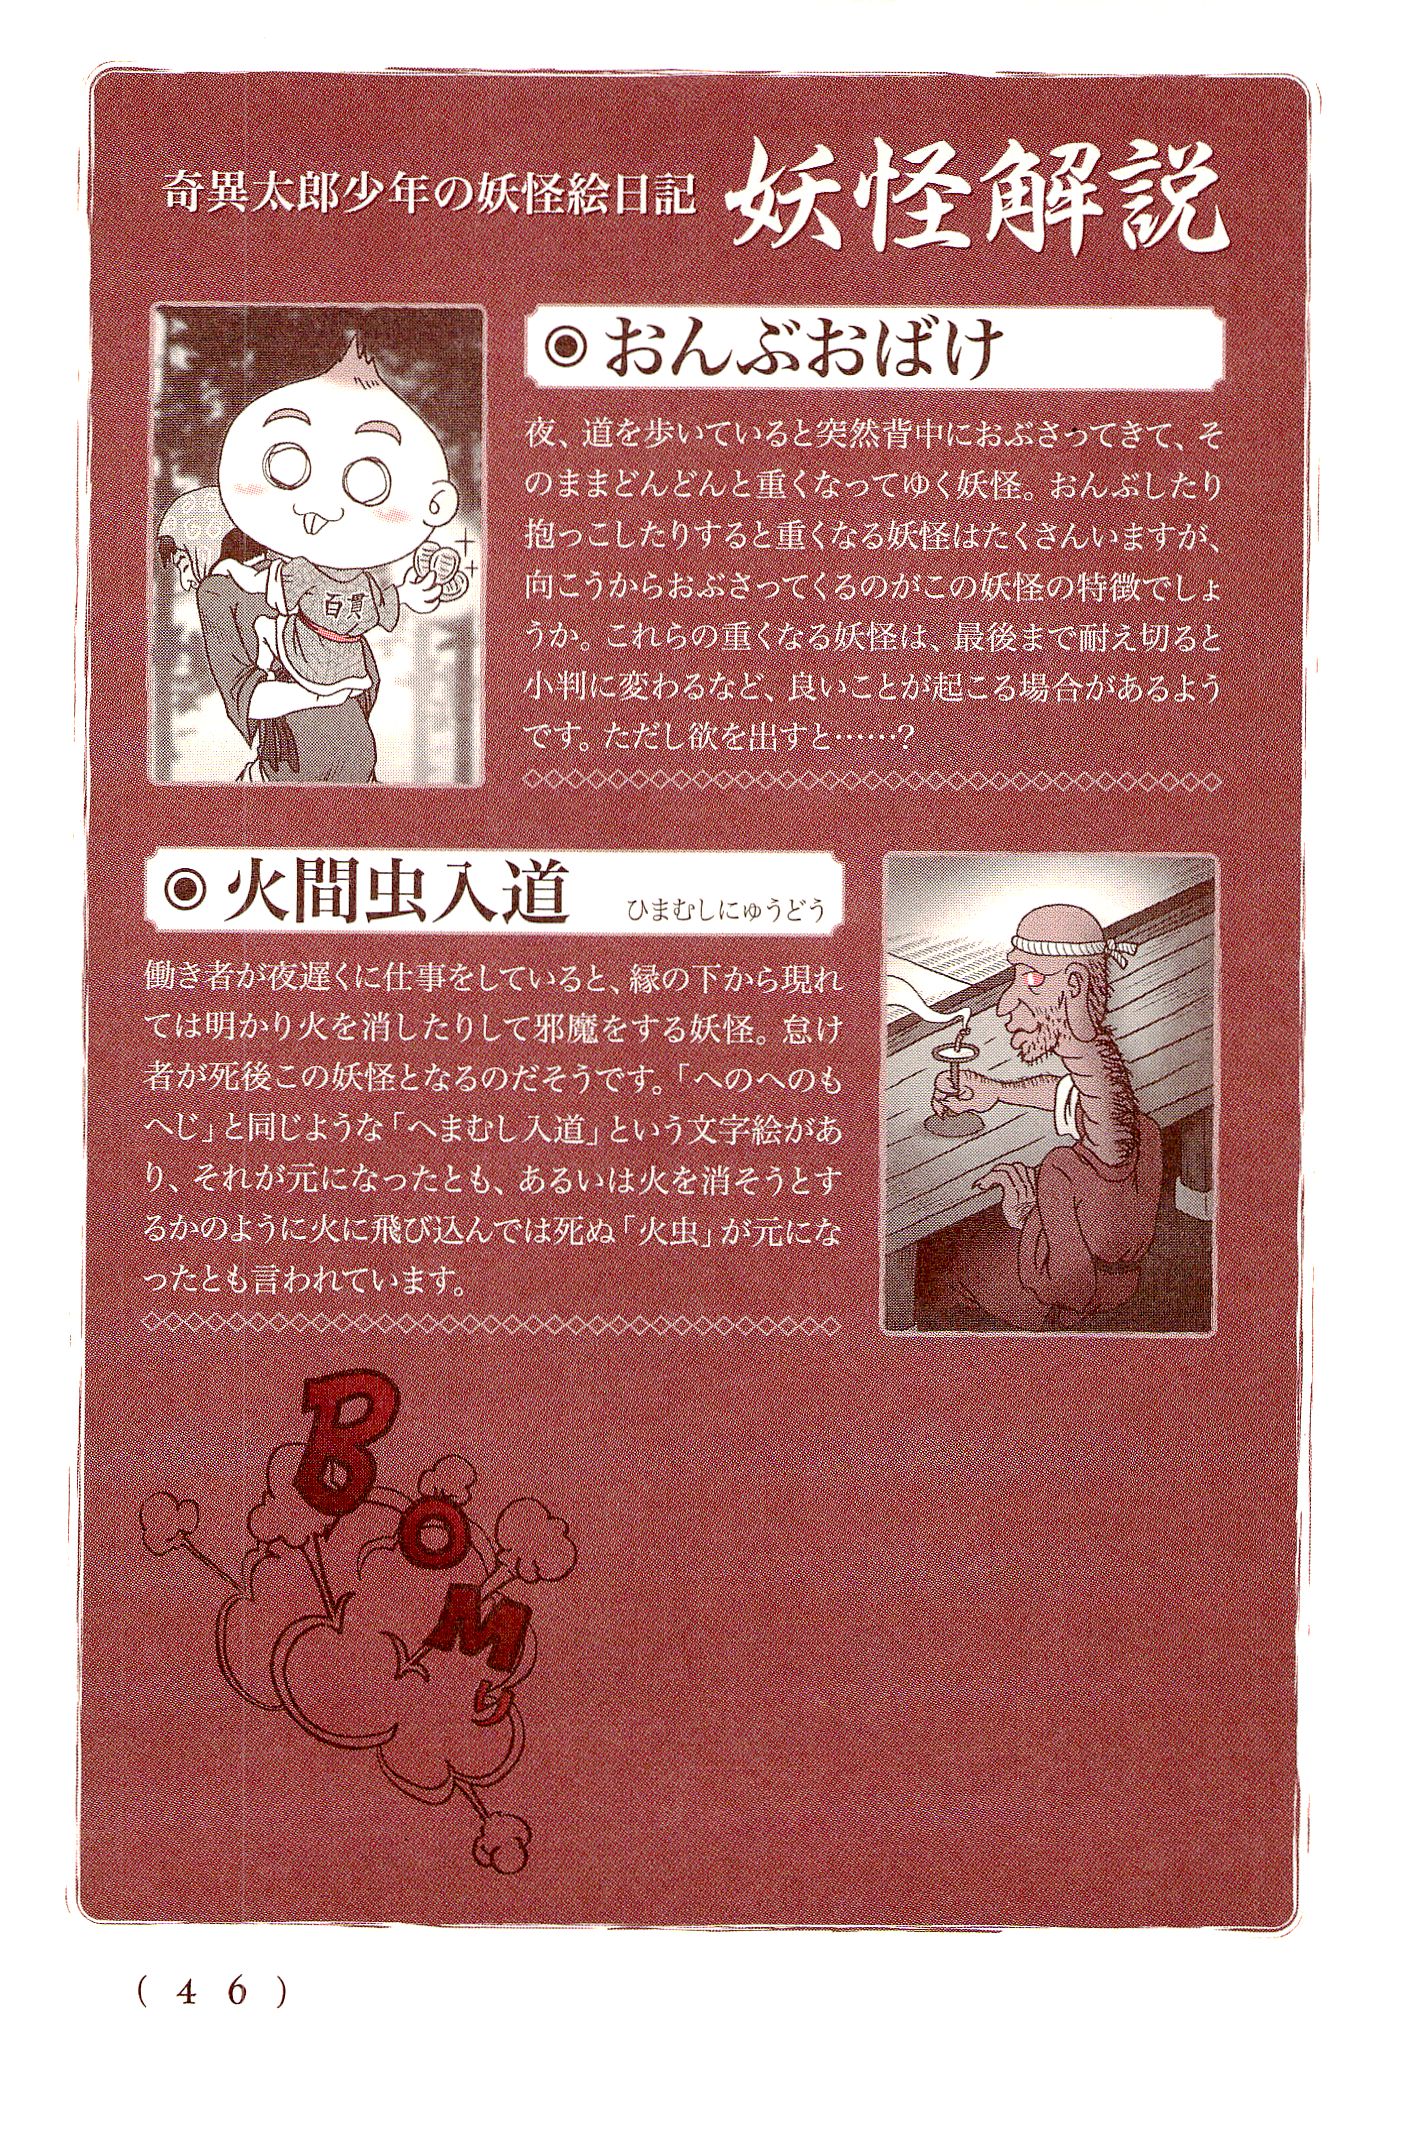 奇異太郎少年の妖怪絵日記 妖怪解説
百貫
◉おんぶおばけ
夜、道を歩いていると突然背中におぶさってきて、そ
のままどんどんと重くなってゆく妖怪。おんぶしたり
抱っこしたりすると重くなる妖怪はたくさんいますが、
向こうからおぶさってくるのがこの妖怪の特徴でしょ
うか。これらの重くなる妖怪は、最後まで耐え切ると
小判に変わるなど、良いことが起こる場合があるよう
です。ただし欲を出すと……?
◉火間虫入道 ひまむしにゅうどう
働き者が夜遅くに仕事をしていると、縁の下から現れ
ては明かり火を消したりして邪魔をする妖怪。怠け
者が死後この妖怪となるのだそうです。「へのへのも
へじ」と同じような「へまむし入道」という文字絵があ
り、それが元になったとも、あるいは火を消そうとす
るかのように火に飛び込んでは死ぬ「火虫」が元にな
ったとも言われています。
BOMり
(46)